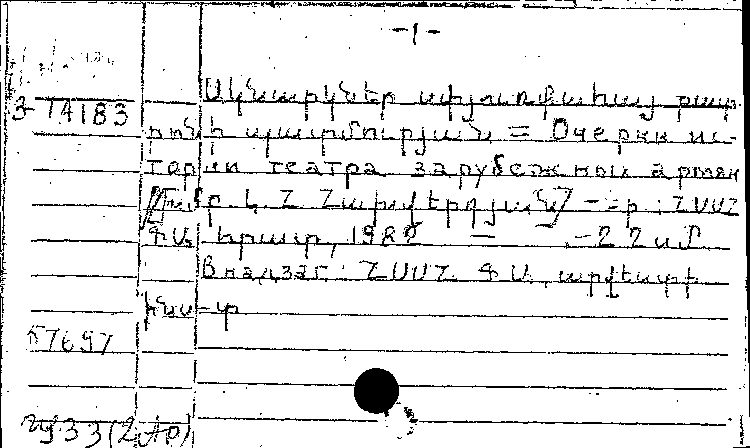 -1-
3-74183
Ակնարկներ սփյուռքահայ թատ-
րոնի պատմության = Очерки ис-
тории театра зарубежной армян
Խմբ. Լ. Հ. Հախվերդյան/ - Ե. : ՀՍՍՀ
ԳԱ հրատ, 1982 - -22 սմ.
В надзаг: ՀՍՍՀ ԳԱ, արվեստի
ինս-տ
57697